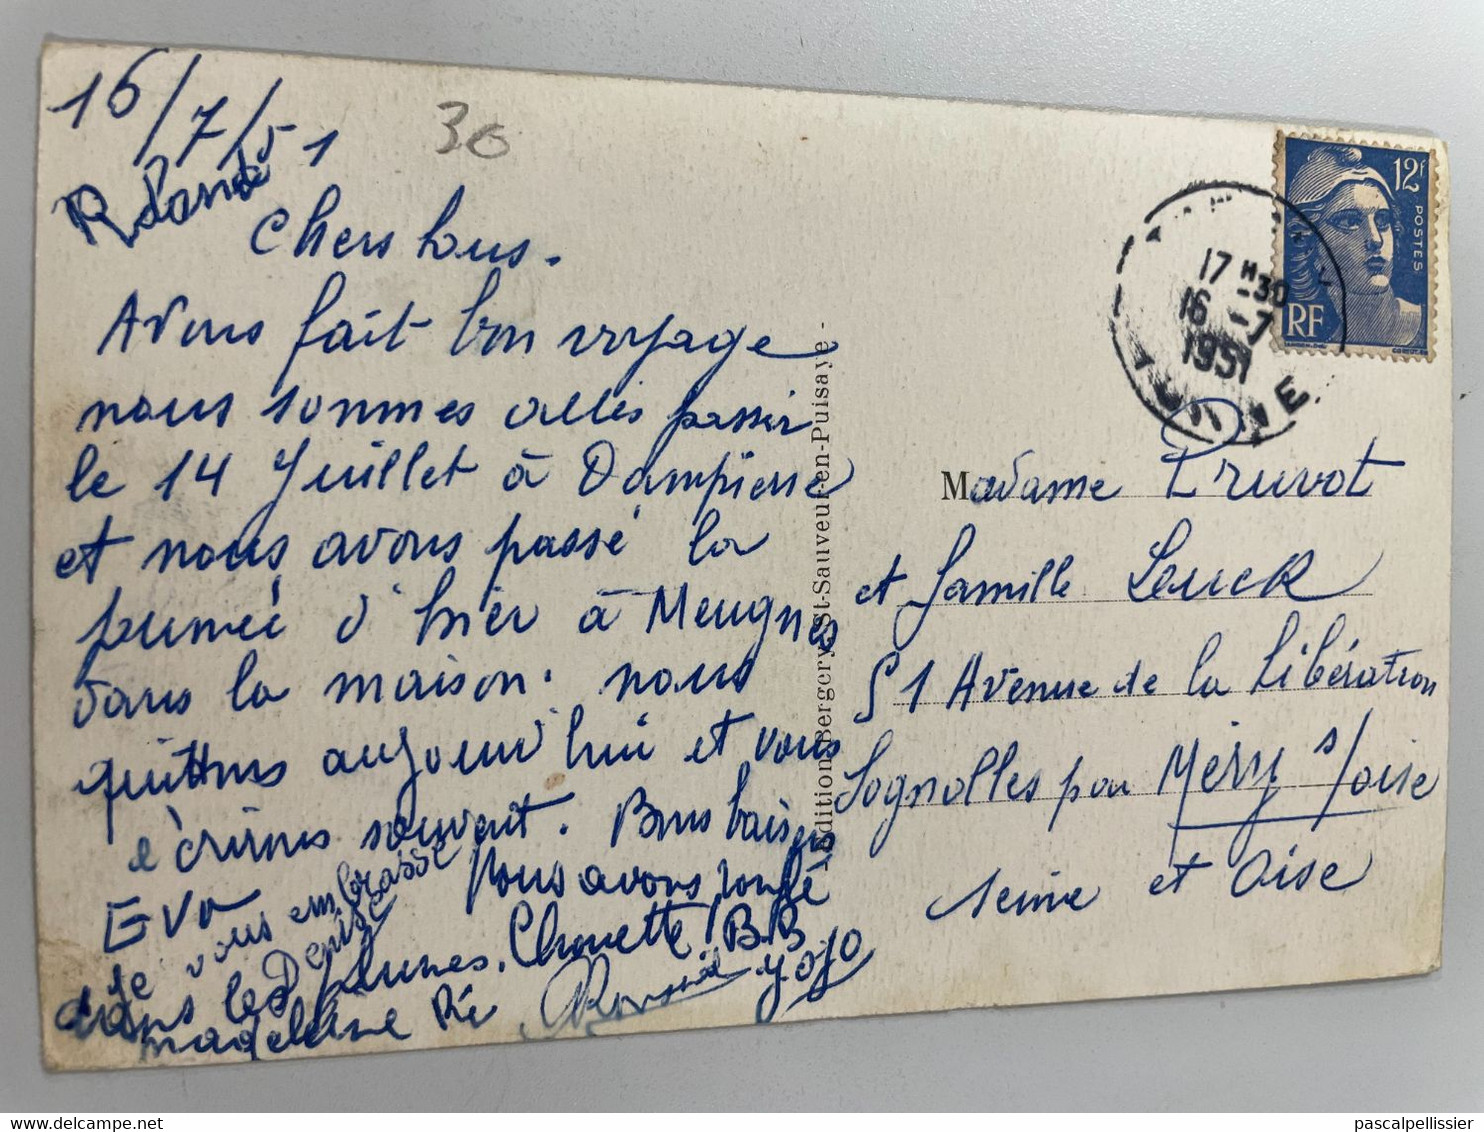 16/7/51
30
Rolande
Chers tous.
Avons fait bon voyage
nous sommes allés passer
le 14 Juillet à Dampierre
et nous avons passé la
journée d'hier à Meugnes
dans la maison. nous
quittons aujourd'hui et vous
écrirons souvent. Bons baisers
Eva
Je vous embrasse
Denise
Nous avons ronflé
dans les plumes. Chouette! B.B
madeleine Ré
yoyo
Edition Bergery, St-Sauveur-en-Puisaye -
12f
POSTES
RF
17H30
16-7
1951
YONNE
Madame Pruvot
et famille Leuck
51 Avenue de la Libération
Sognolles par Méry s/oise
seine et Oise
pascalpellissier
delcampe.net